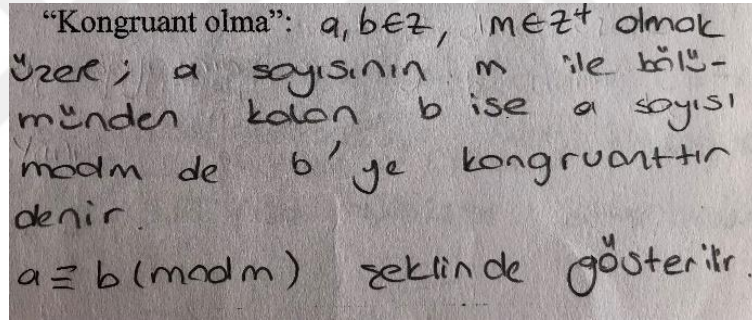 “Kongruant olma”: a, b ∈ Z, m ∈ Z⁺ olmak
üzere; a sayısının m ile bölü-
münden kalan b ise a sayısı
modm de b'ye kongruanttır
denir.
a ≡ b (modm) şeklinde gösterilir.